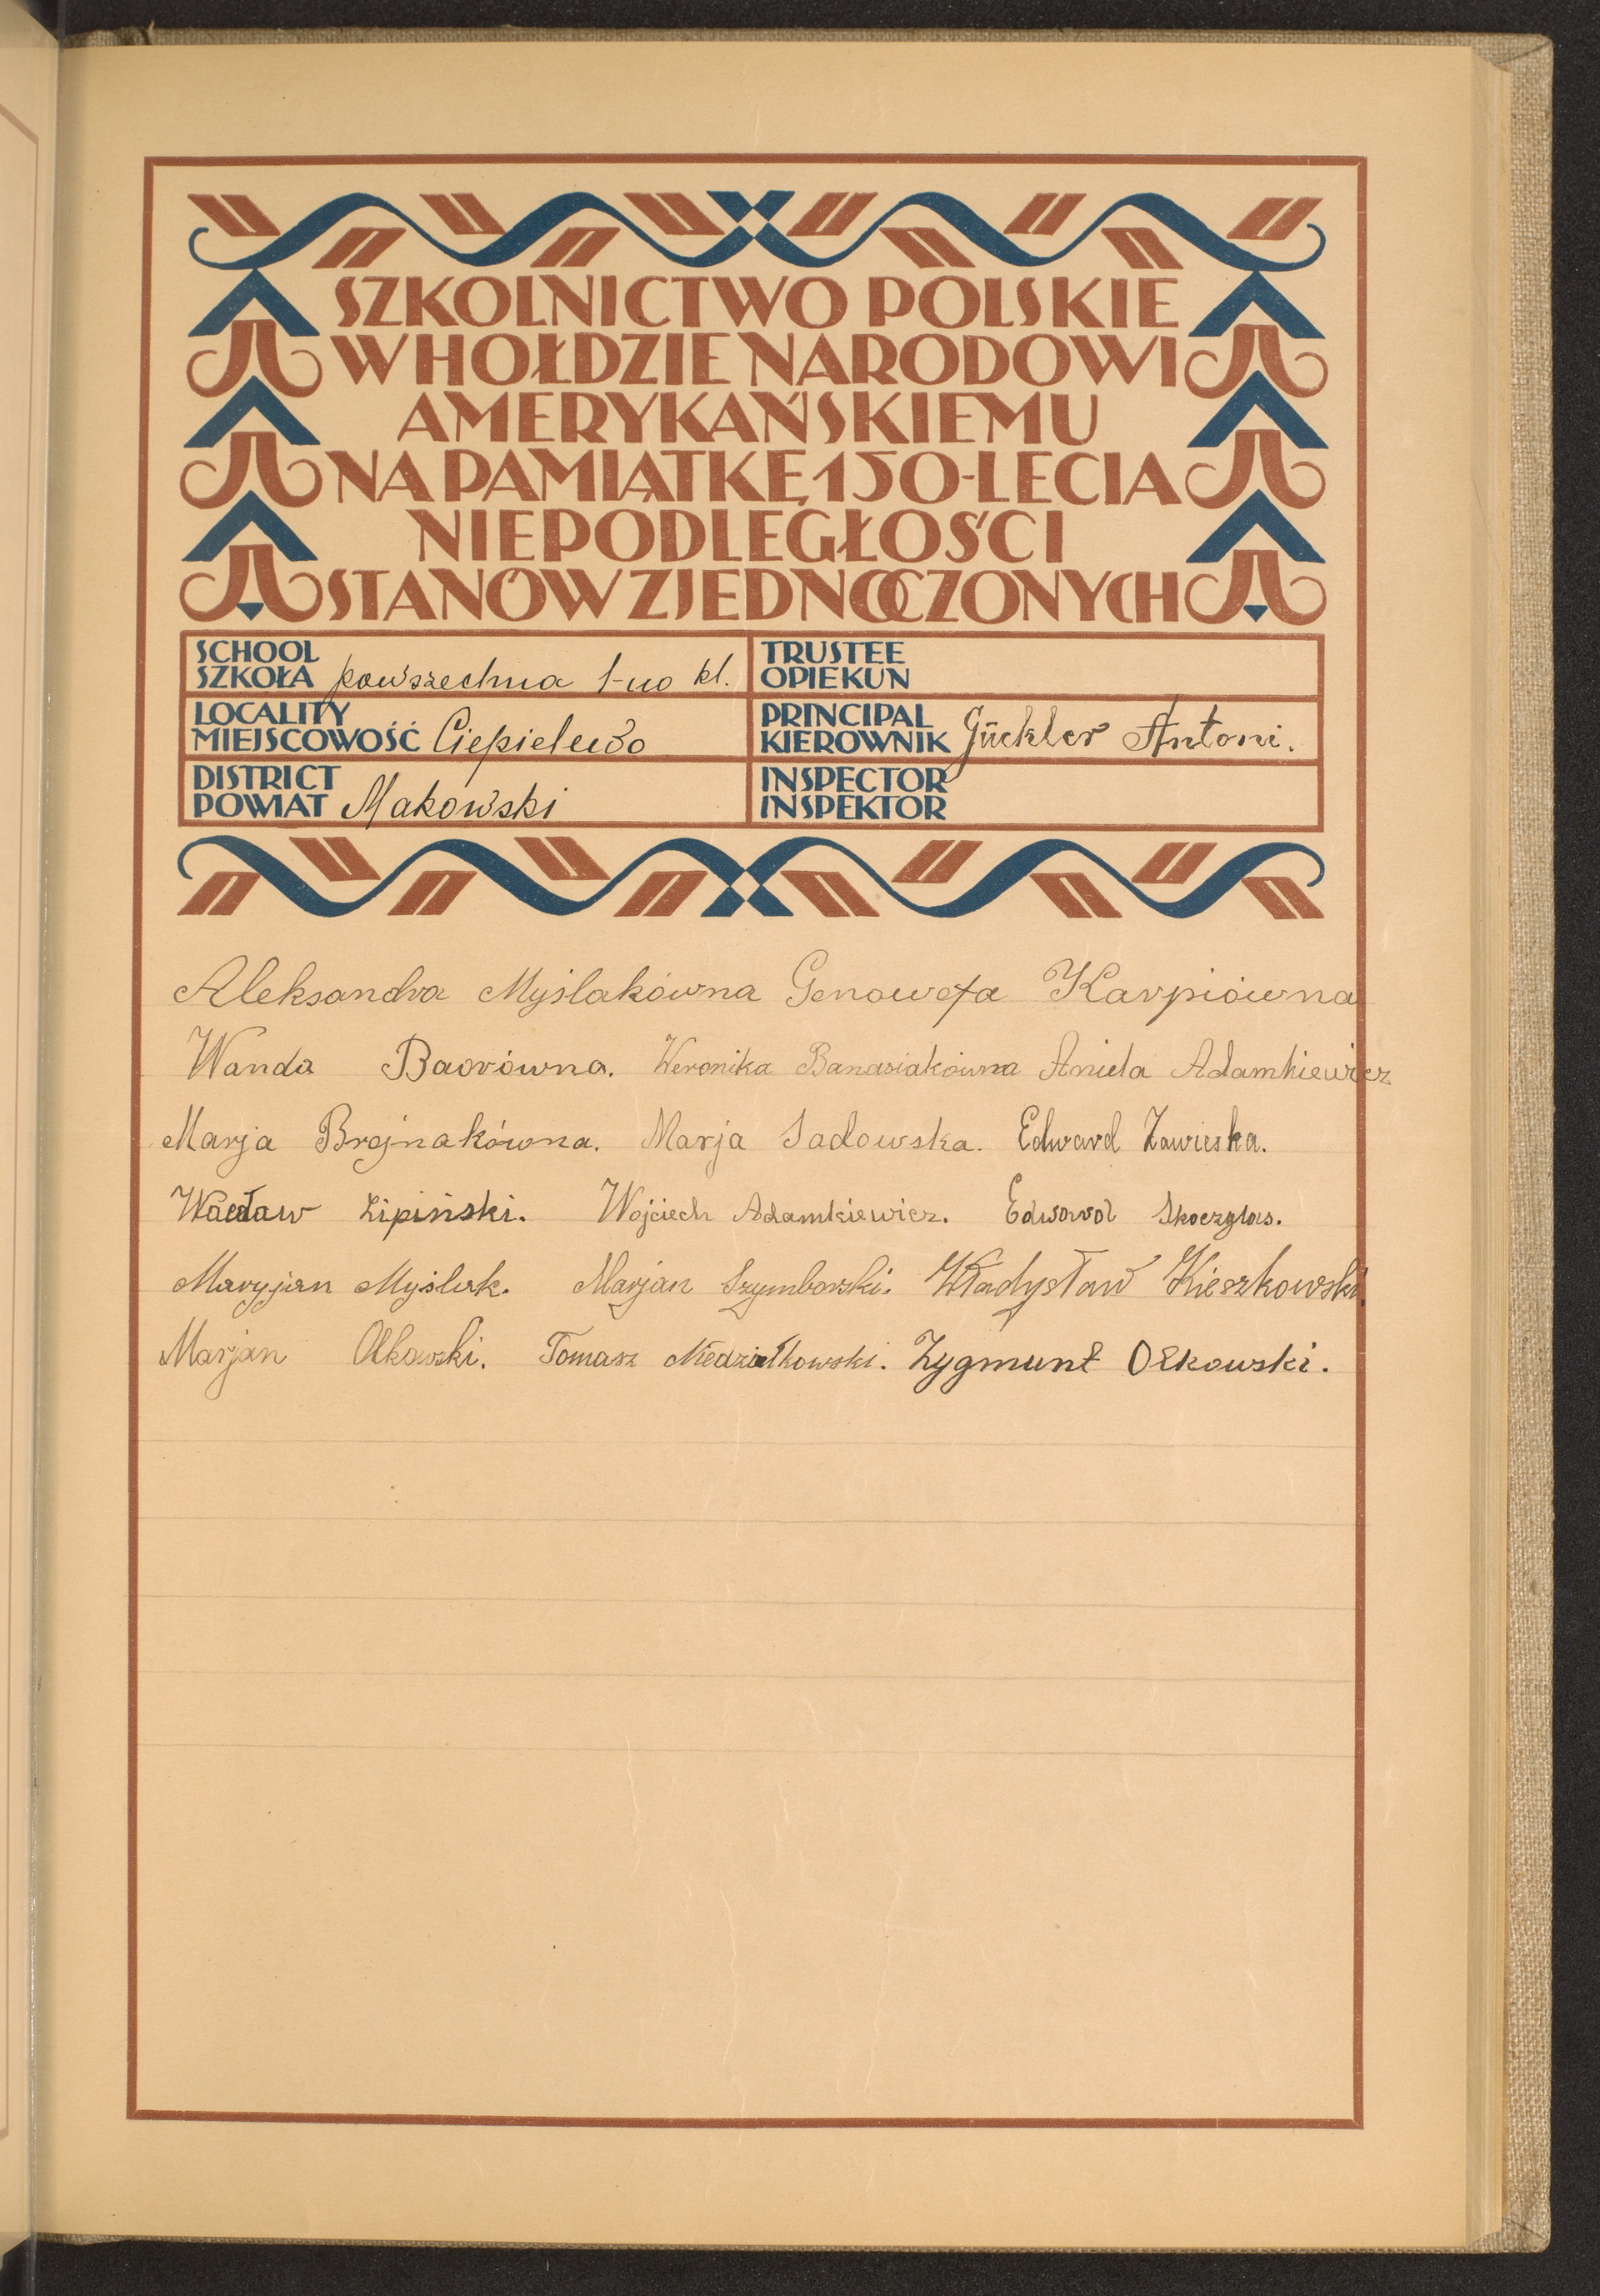 SZKOLNICTWO POLSKIE
W HOŁDZIE NARODOWI
AMERYKAŃSKIEMU
NA PAMIĄTKĘ 150-LECIA
NIEPODLEGŁOŚCI
STANÓW ZJEDNOCZONYCH
SCHOOL
SZKOŁA powszechna 1-no kl.
TRUSTEE
OPIEKUN
LOCALITY
MIEJSCOWOŚĆ Ciepielewo
PRINCIPAL
KIEROWNIK Gückler Antoni.
DISTRICT
POWIAT Makowski
INSPECTOR
INSPEKTOR
Aleksandra Myślakówna Genowefa Karpiówna
Wanda Baorówna. Weronika Banasiakówna Aniela Adamkiewicz
Marja Brojnakówna. Marja Sadowska. Edward Zawieska.
Wacław Lipiński. Wojciech Adamkiewicz. Edward Skoczylas.
Maryjan Myślak. Marjan Szymborski. Władysław Kieszkowski.
Marjan Olkowski. Tomasz Niedziałkowski. Zygmunt Olkowski.